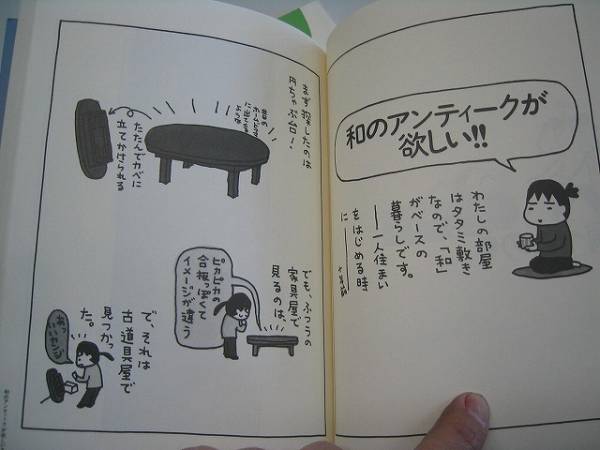 和のアンティークが
欲しい!!
わたしの部屋
はタタミ敷き
なので、「和」
がベースの
暮らしです。
一人住まい
をはじめる時
に
まず探したのは
円ちゃぶ台!
昔の
ホームドラマ
に出てくる
ような
たたんでカベに
立てかけられる
でも、ふつうの
家具屋で
見るのは、
ピカピカの
合板っぽくて
イメージが違う
で、それは
古道具屋で
見つかっ
た。
あっ
いいカンジ